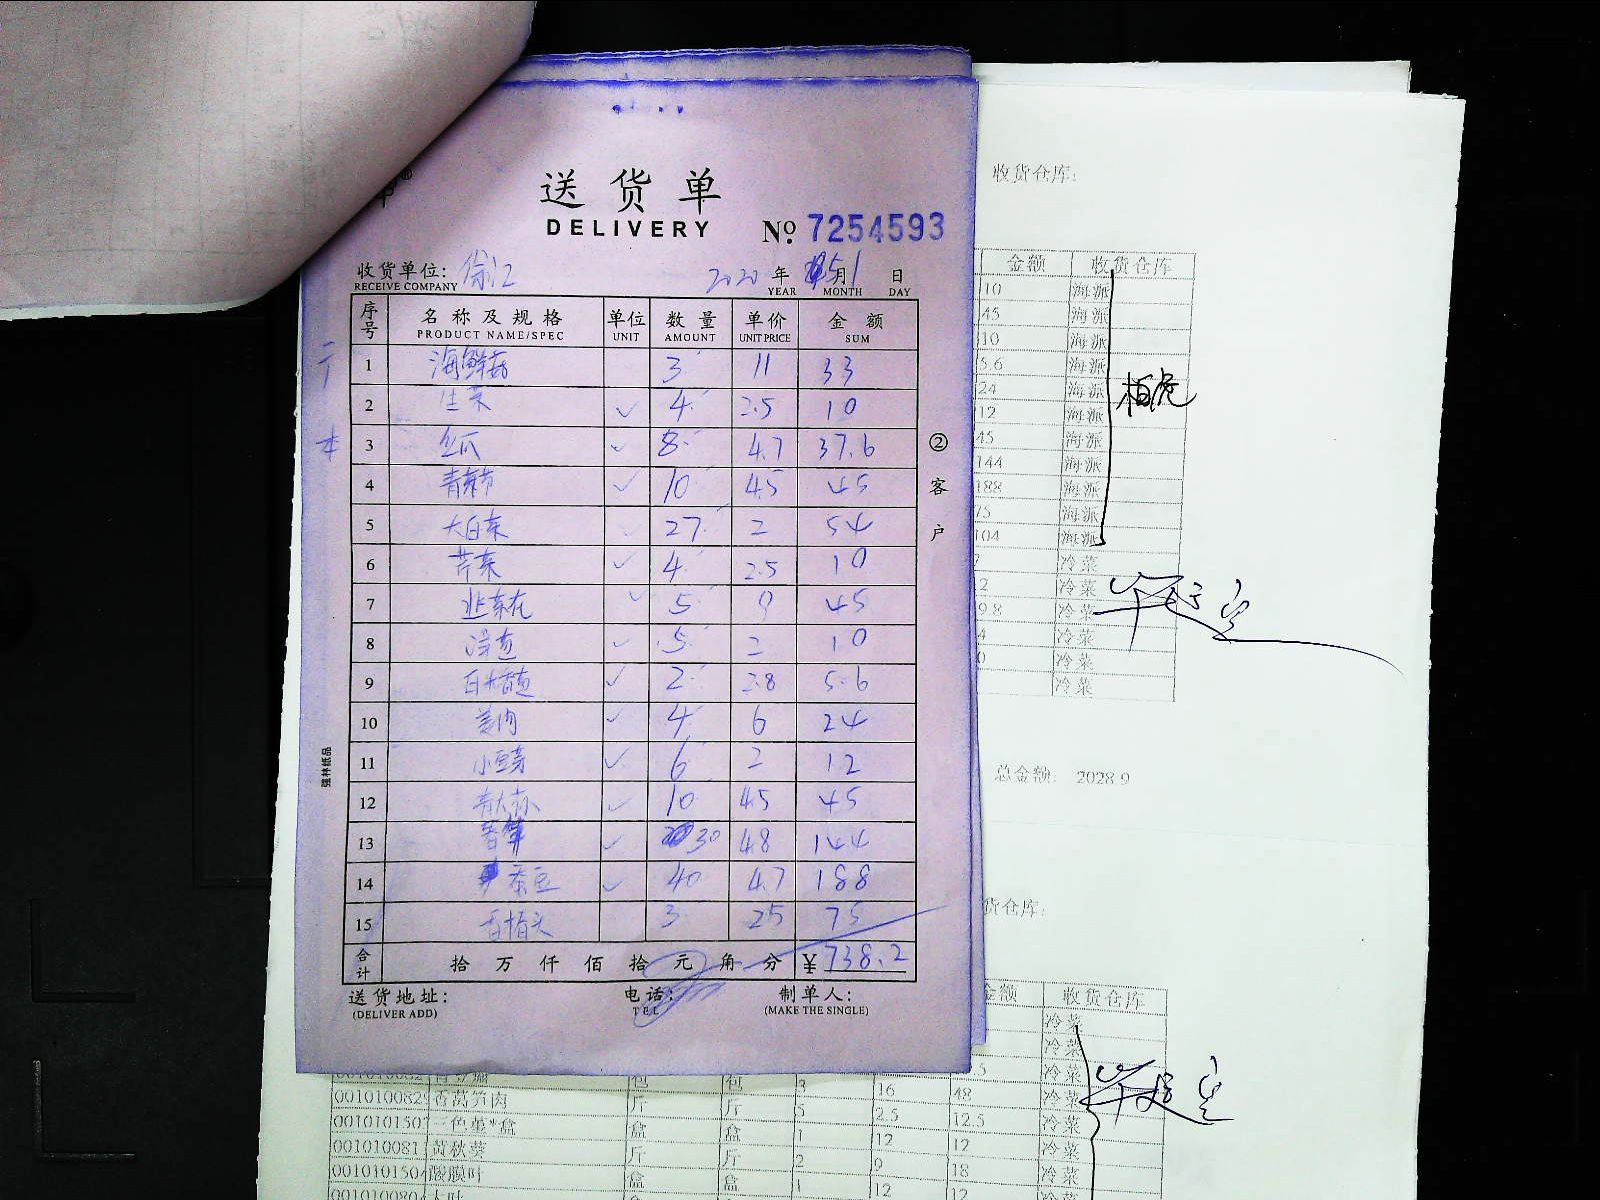 送货单
DELIVERY
№ 7254593
收货单位: 徐汇 2020 年 5 月 1 日
RECEIVE COMPANY YEAR MONTH DAY
序号 名称及规格 单位 数量 单价 金额
PRODUCT NAME/SPEC UNIT AMOUNT UNIT PRICE SUM
1 海鲜菇 3 11 33
2 生菜 ✓ 4 2.5 10
3 丝瓜 ✓ 8 4.7 37.6
4 青菜 ✓ 10 4.5 45
5 大白菜 27 2 54
6 芹菜 ✓ 4 2.5 10
7 韭菜 ✓ 5 9 45
8 ✓ 5 2 10
9 白 ✓ 2 2.8 5.6
10 姜肉 ✓ 4 6 24
11 小豆芽 ✓ 6 2 12
12 青大 ✓ 10 4.5 45
13 ✓ 30 4.8 144
14 蚕豆 ✓ 40 4.7 188
15 3 25 75
合计 拾 万 仟 佰 拾 元 角 分 ¥ 738.2
送货地址: 电话: 制单人:
(DELIVER ADD) TEL (MAKE THE SINGLE)
② 客户
强林纸品
收货仓库:
金额 收货仓库
10 海派
45 海派
10 海派
5.6 海派
24 海派
12 海派
45 海派
144 海派
188 海派
75 海派
104 海派
冷菜
2 冷菜
9.8 冷菜
4 冷菜
0 冷菜
冷菜
总金额: 2028.9
货仓库:
金额 收货仓库
冷菜
冷菜
5 冷菜
包 包 3 16 48 冷菜
001010082 香莴笋肉 斤 斤 5 2.5 12.5 冷菜
001010150 三色堇*盒 盒 盒 1 12 12 冷菜
001010081 黄秋葵 斤 斤 2 9 18 冷菜
001010150 酸膜叶 盒 盒 1 12 12 冷菜
001010080